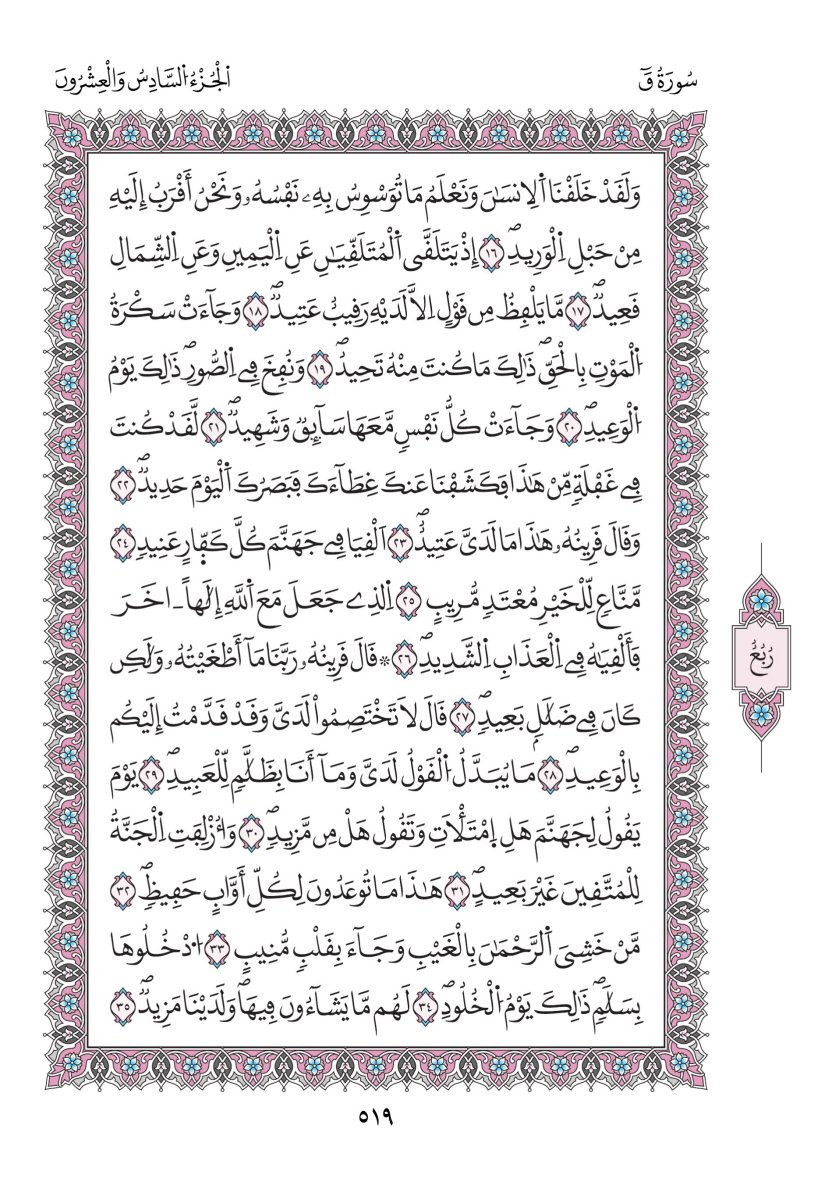 سُورَةُ قٓ
اَ۬لْجُزْءُ اُ۬لسَّادِسُ وَالْعِشْرُونَ
وَلَقَدْ خَلَقْنَا اَ۬لِانسَٰنَ وَنَعْلَمُ مَا تُوَسْوِسُ بِهِۦ نَفْسُهُۥ وَنَحْنُ أَقْرَبُ إِلَيْهِ
مِنْ حَبْلِ اِ۬لْوَرِيدِۖ ١٦ إِذْ يَتَلَقَّى اَ۬لْمُتَلَقِّيَٰنِ عَنِ اِ۬لْيَمِينِ وَعَنِ اِ۬لشِّمَالِ
قَعِيدٞۖ ١٧ مَّا يَلْفِظُ مِن قَوْلٍ اِلَّا لَدَيْهِ رَقِيبٌ عَتِيدٞۖ ١٨ وَجَآءَتْ سَكْرَةُ
اُ۬لْمَوْتِ بِالْحَقِّۖ ذَٰلِكَ مَا كُنتَ مِنْهُ تَحِيدُۖ ١٩ وَنُفِخَ فِے اِ۬لصُّورِۖ ذَٰلِكَ يَوْمُ
اُ۬لْوَعِيدِۖ ٢٠ وَجَآءَتْ كُلُّ نَفْسٖ مَّعَهَا سَآئِقٞ وَشَهِيدٞۖ ٢١ لَّقَدْ كُنتَ
فِے غَفْلَةٖ مِّنْ هَٰذَا فَكَشَفْنَا عَنكَ غِطَآءَكَ فَبَصَرُكَ اَ۬لْيَوْمَ حَدِيدٞۖ ٢٢
وَقَالَ قَرِينُهُۥ هَٰذَا مَا لَدَيَّ عَتِيدٌۖ ٢٣ اَلْقِيَا فِے جَهَنَّمَ كُلَّ كَفّ۪ارٍ عَنِيدٖ ٢٤
مَّنَّاعٖ لِّلْخَيْرِ مُعْتَدٖ مُّرِيبٍ ٢٥ اِ۬لذِے جَعَلَ مَعَ اَ۬للَّهِ إِلَٰهاً ـ اخَرَ
فَأَلْقِيَٰهُ فِے اِ۬لْعَذَابِ اِ۬لشَّدِيدِۖ ٢٦ ۞قَالَ قَرِينُهُۥ رَبَّنَا مَآ أَطْغَيْتُهُۥ وَلَٰكِن
كَانَ فِے ضَلَٰلِۢ بَعِيدٖۖ ٢٧ قَالَ لَا تَخْتَصِمُواْ لَدَيَّ وَقَدْ قَدَّمْتُ إِلَيْكُم
بِالْوَعِيدِۖ ٢٨ مَا يُبَدَّلُ اُ۬لْقَوْلُ لَدَيَّ وَمَآ أَنَا بِظَلَّٰمٖ لِّلْعَبِيدِۖ ٢٩ يَوْمَ
يَقُولُ لِجَهَنَّمَ هَلِ اِ۪مْتَلَأْتِ وَتَقُولُ هَلْ مِن مَّزِيدٖۖ ٣٠ وَأُزْلِفَتِ اِ۬لْجَنَّةُ
لِلْمُتَّقِينَ غَيْرَ بَعِيدٍۖ ٣١ هَٰذَا مَا تُوعَدُونَ لِكُلِّ أَوَّابٍ حَفِيظٖۖ ٣٢
مَّنْ خَشِيَ اَ۬لرَّحْمَٰنَ بِالْغَيْبِ وَجَآءَ بِقَلْبٖ مُّنِيبٍ ٣٣ اُ۟دْخُلُوهَا
بِسَلَٰمٖۖ ذَٰلِكَ يَوْمُ اُ۬لْخُلُودِۖ ٣٤ لَهُم مَّا يَشَآءُونَ فِيهَاۖ وَلَدَيْنَا مَزِيدٞۖ ٣٥
رُبُعُ
٥١٩